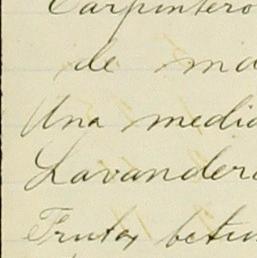 Carpintero
de mo
Una media
Lavander
Frutas betu